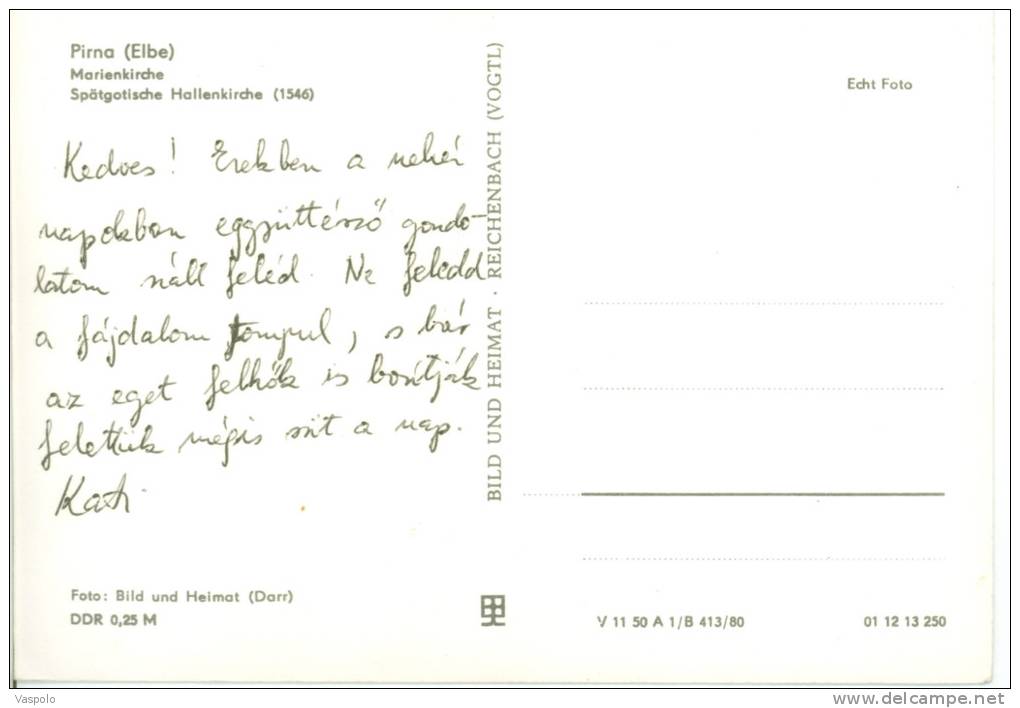 Pirna (Elbe)
Marienkirche
Spätgotische Hallenkirche (1546)
Echt Foto
Kedves! Ezekben a nehéz
napokban együttérző gondo-
latom száll feléd. Ne feledd
a fájdalom tompul, s bár
az eget felhők is borítják
felettük mégis süt a nap.
Kati
BILD UND HEIMAT · REICHENBACH (VOGTL)
Foto: Bild und Heimat (Darr)
DDR 0,25 M
V 11 50 A 1/B 413/80
01 12 13 250
Vaspolo
www.delcampe.net